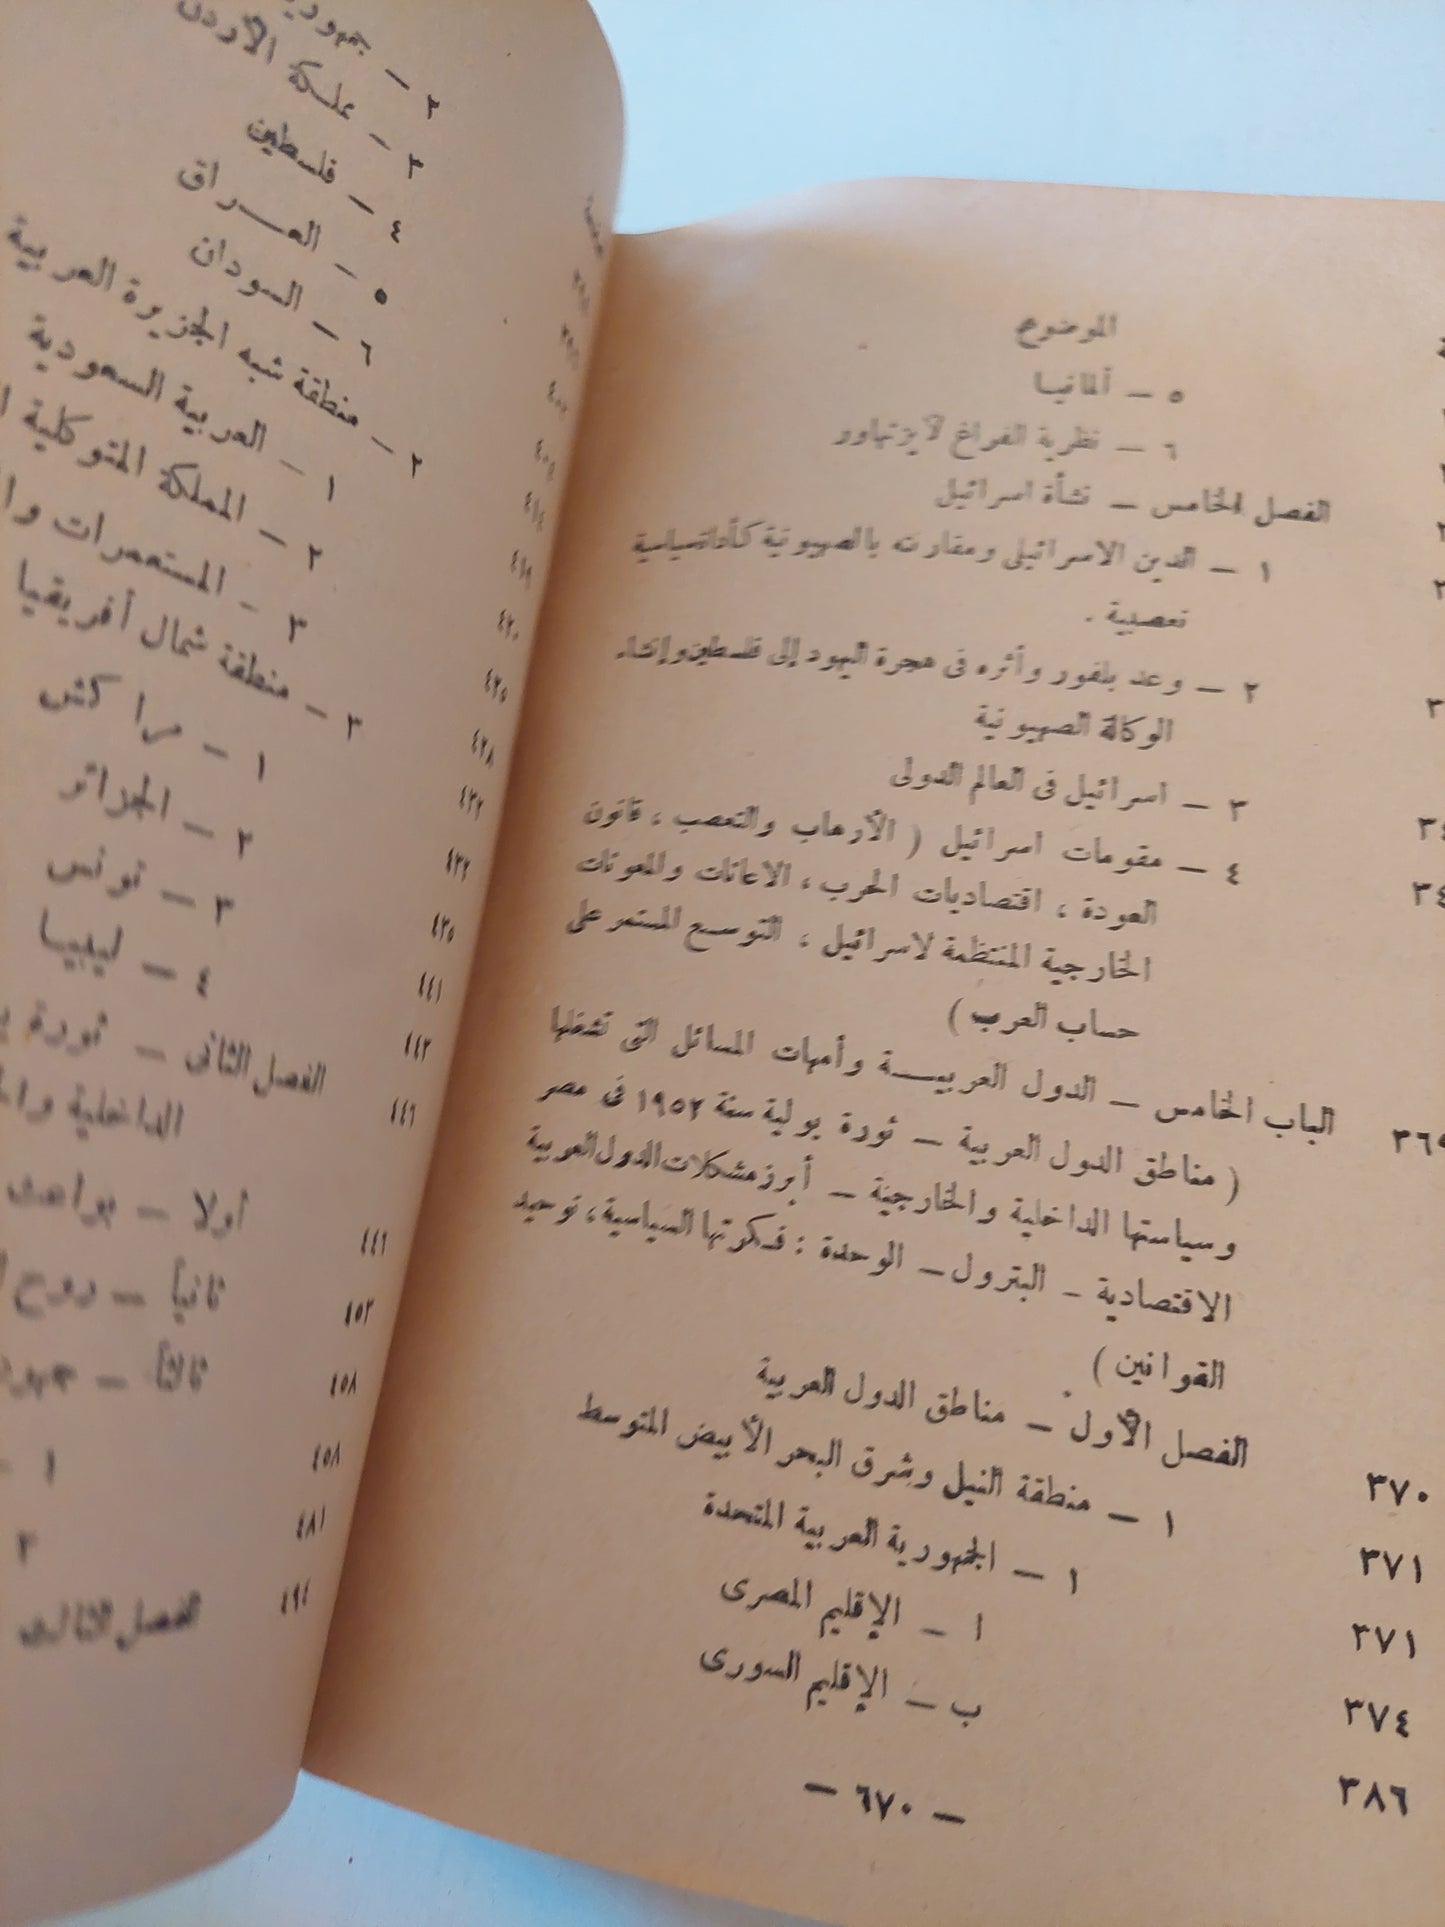 الموضوع
٥ — ألمانيا
٦ — نظرية الفراغ لايزنهاور
الفصل الخامس — نشأة اسرائيل
١ — الدين الاسرائيلى ومقارنته بالصهيونية كأداة سياسية
تعصبية .
٢ — وعد بلفور وأثره فى هجرة اليهود إلى فلسطين وإنشاء
الوكالة الصهيونية
٣ — اسرائيل فى العالم الدولى
٤ — مقومات اسرائيل ( الأرهاب والتعصب ، قانون
العودة ، اقتصاديات الحرب ، الاعانات والمعونات
الخارجية المنتظمة لاسرائيل ، التوسع المستمر على
حساب العرب )
الباب الخامس — الدول العربيـــة وأمهات المسائل التى تشغلها ٣٦٥
( مناطق الدول العربية — ثورة يولية سنة ١٩٥٢ فى مصر
وسياستها الداخلية والخارجية — أبرز مشكلات الدول العربية
الاقتصادية - البترول — الوحدة : فكرتها السياسية ، توحيد
القوانين )
الفصل الأول — مناطق الدول العربية ٣٧٠
١ — منطقة النيل وشرق البحر الأبيض المتوسط ٣٧١
١ — الجمهورية العربية المتحدة ٣٧١
ا — الإقليم المصرى ٣٧٤
ب — الإقليم السورى ٣٨٦
— ٦٧٠ —
٢ —
٣ — مملكة الأردن
٤ — فلسطين
٥ — العـــراق
٦ — السودان
٢ — منطقة شبه الجزيرة العربية
١ — العربية السعودية
٢ — المملكة المتوكلية
٣ — المستعمرات
٣ — منطقة شمال أفريقيا
١ — مراكش
٢ — الجزائر
٣ — تونس
٤ — ليبيا
الفصل الثانى — ثورة
الداخلية
أولا —
ثانياً — روح
ثالثاً —
١ —
٢
الفصل الثالث
٤١٤
٤١٩
٤٢٠
٤٢٥
٤٢٨
٤٣٢
٤٣٢
٤٣٥
٤٤١
٤٤٣
٤٤٦
٤٤٦
٤٥٢
٤٥٨
٤٥٨
٤٨١
٤٩٤